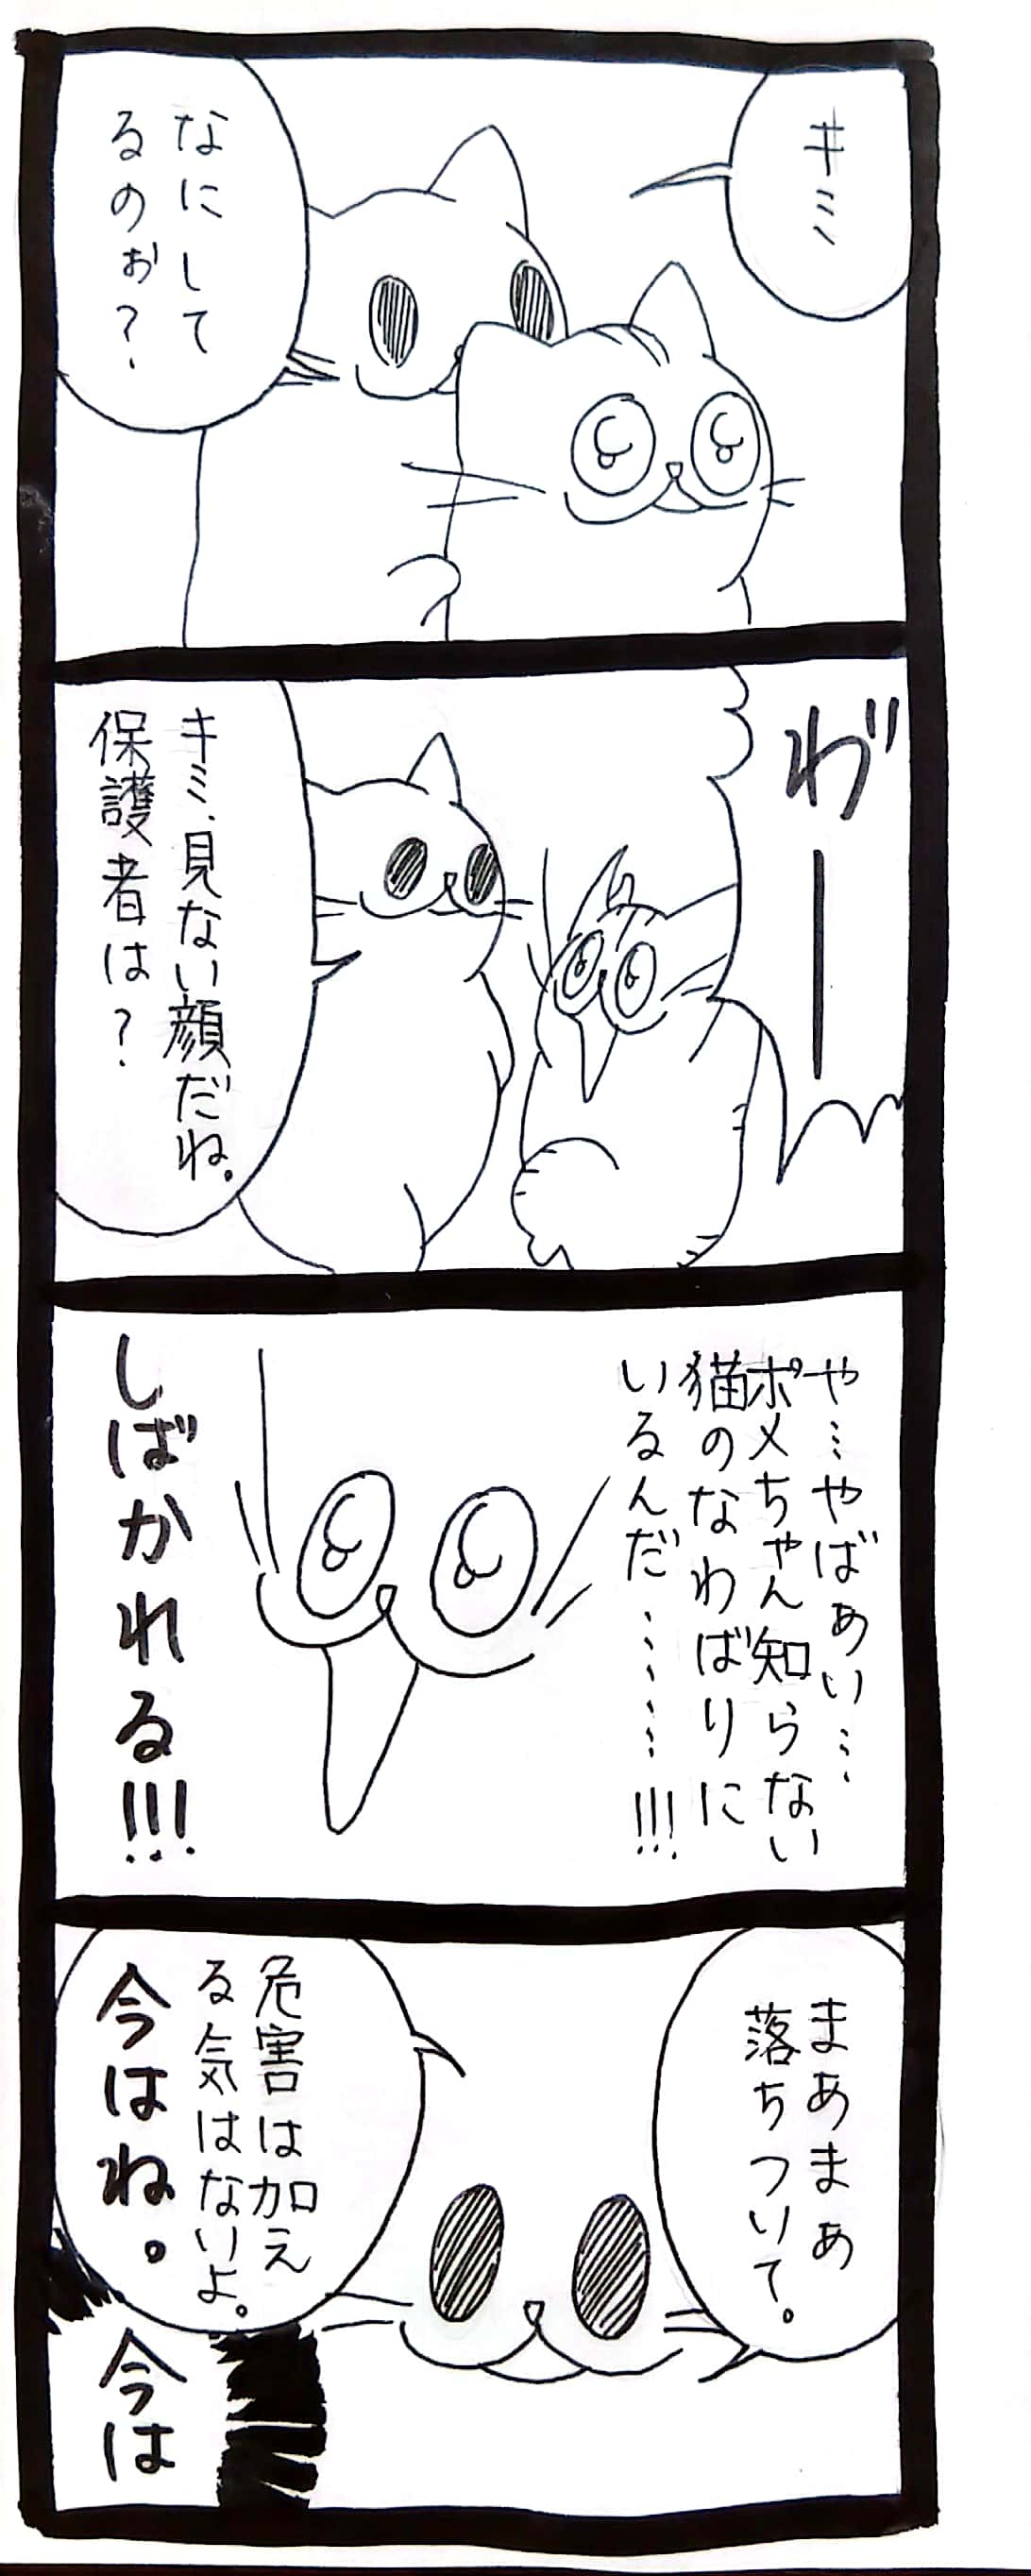 キミ
なにして
るのぉ?
わ゛ー
キミ、見ない顔だね。
保護者は?
や…やばあい…
ポメちゃん知らない
猫のなわばりに
いるんだ…………!!!
しばかれる!!!
まあまあ
落ちついて。
危害は加え
る気はないよ。
今はね。
今は